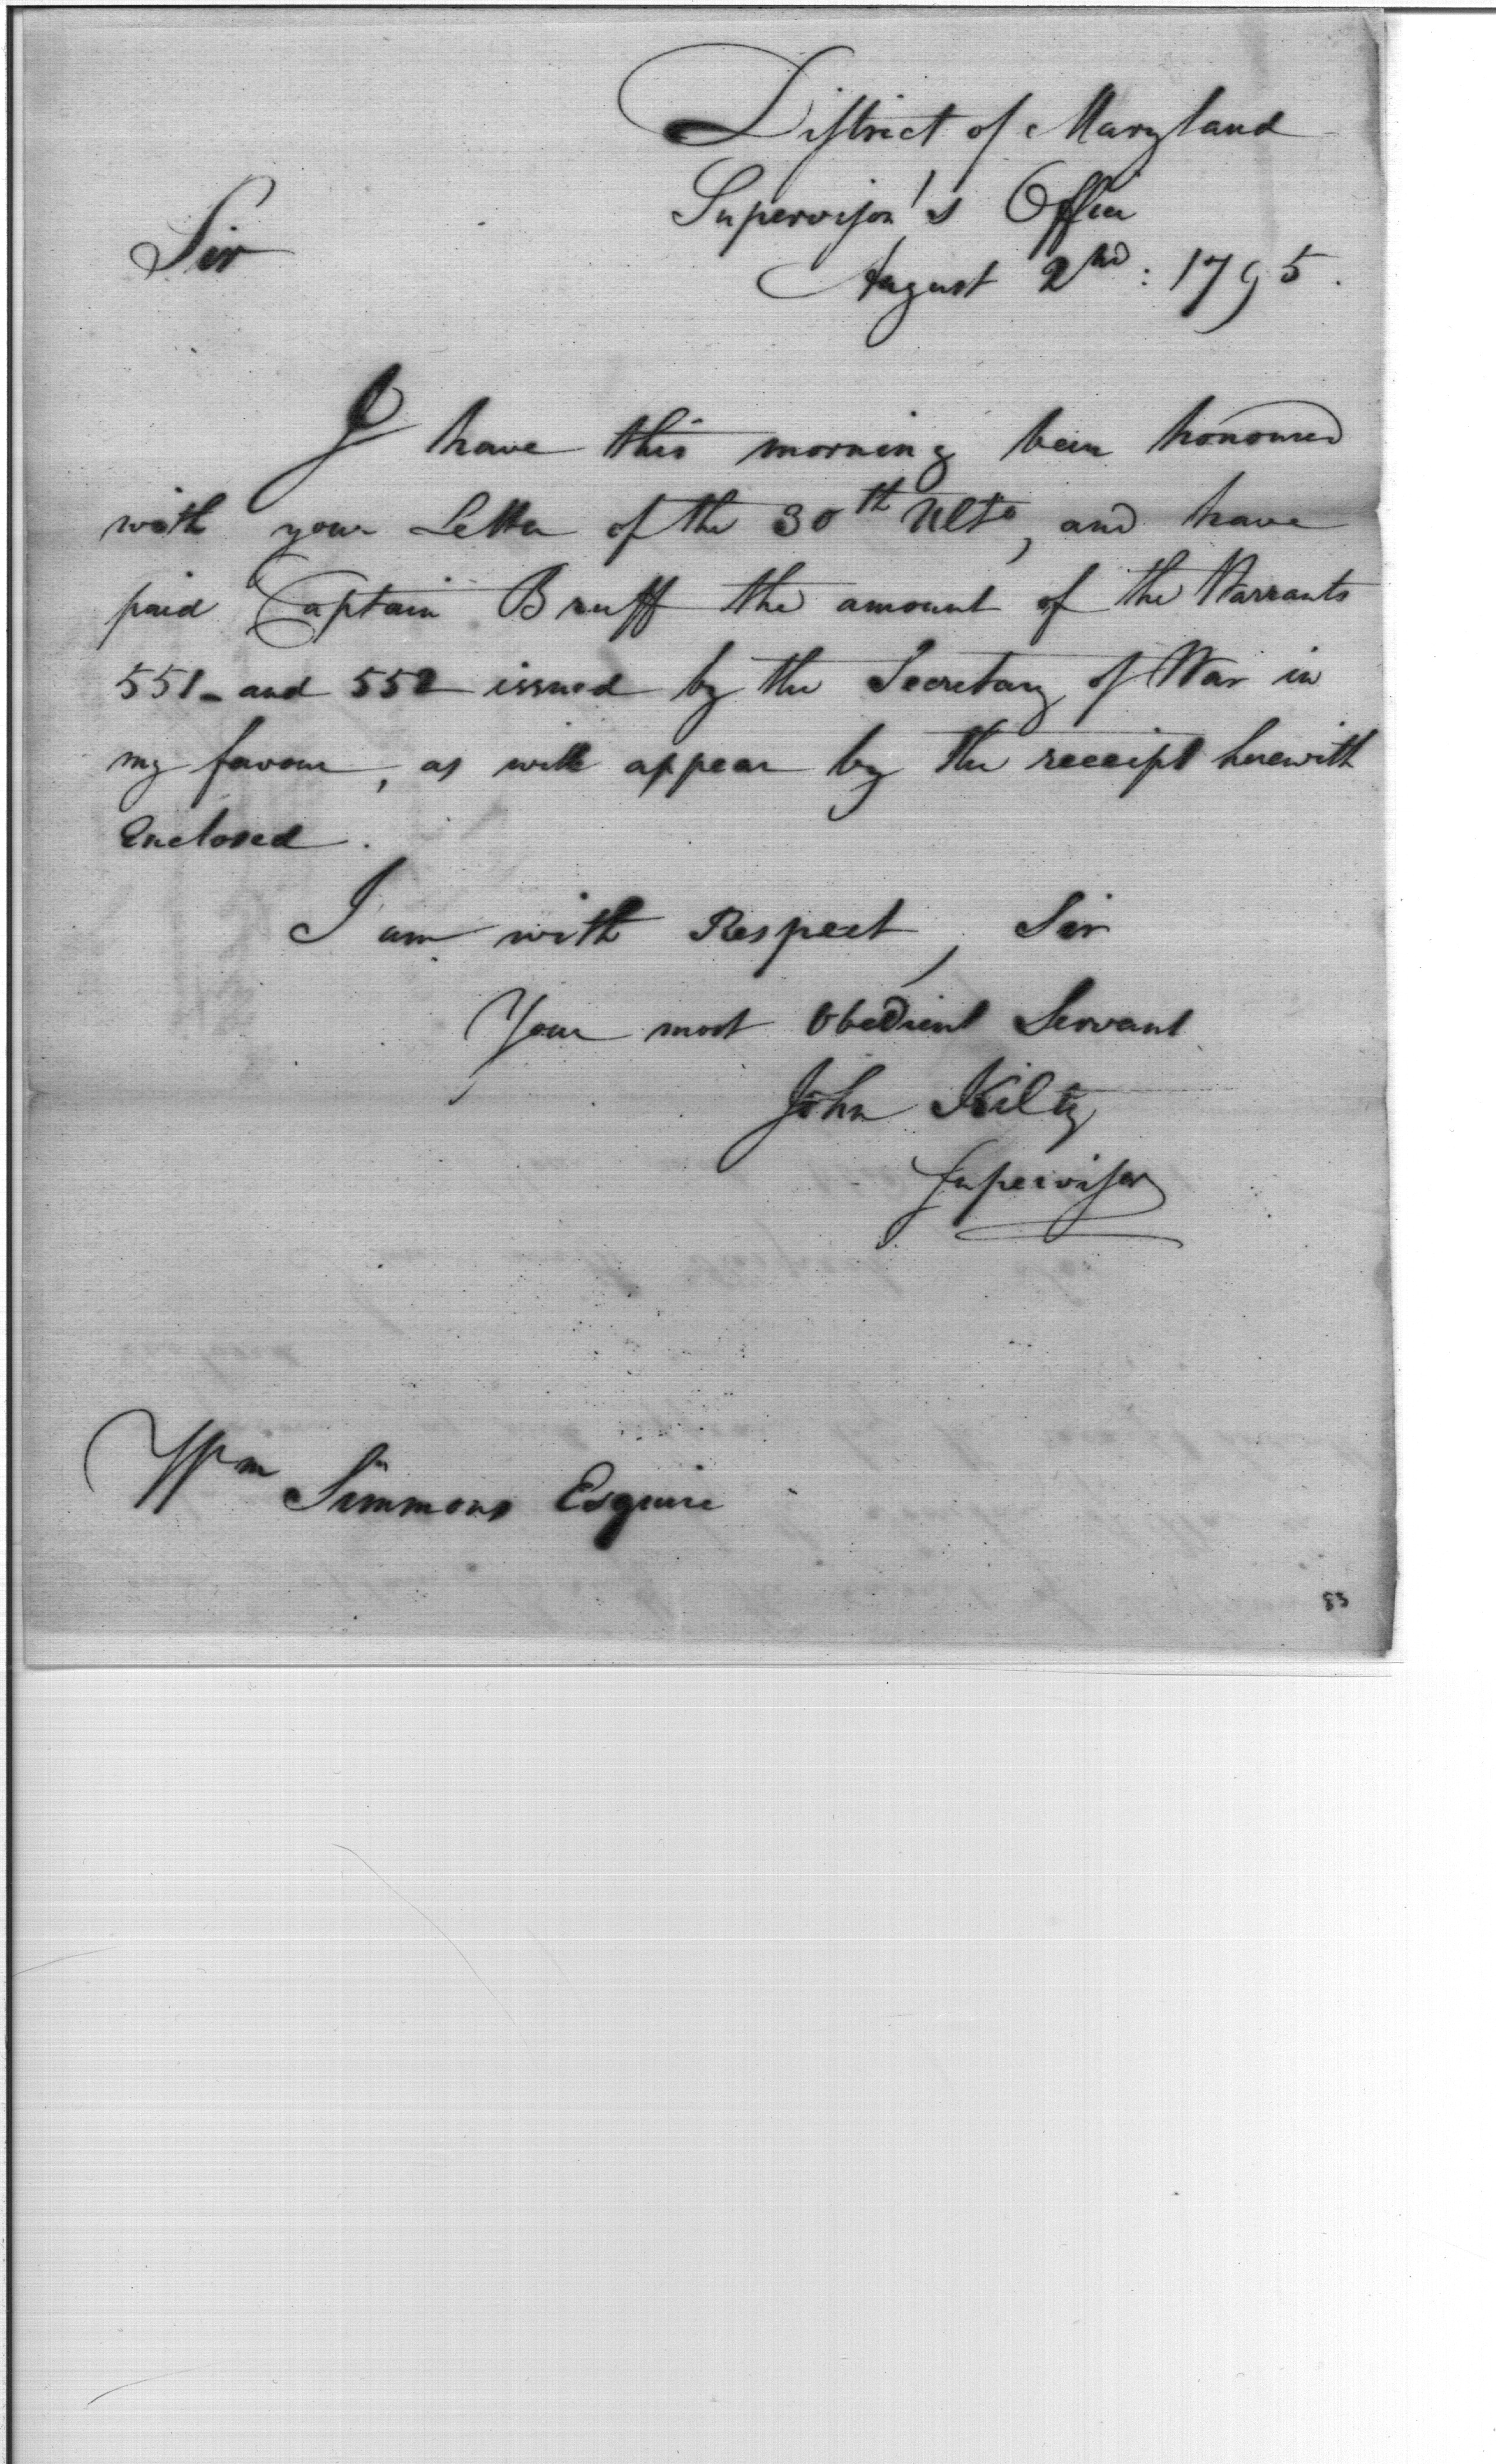 District of Maryland
Supervisor's Office
Sir
August 2nd: 1795.
I have this morning been honoured
with your Letter of the 30th Ulto, and have
paid Captain Bruff the amount of the Warrants
551- and 552 issued by the Secretary of War in
my favour, as will appear by the receipt herewith
Enclosed.
I am with Respect, Sir
Your most Obedient Servant
John Kilty
Supervisor
Wm Simmons Esquire
83